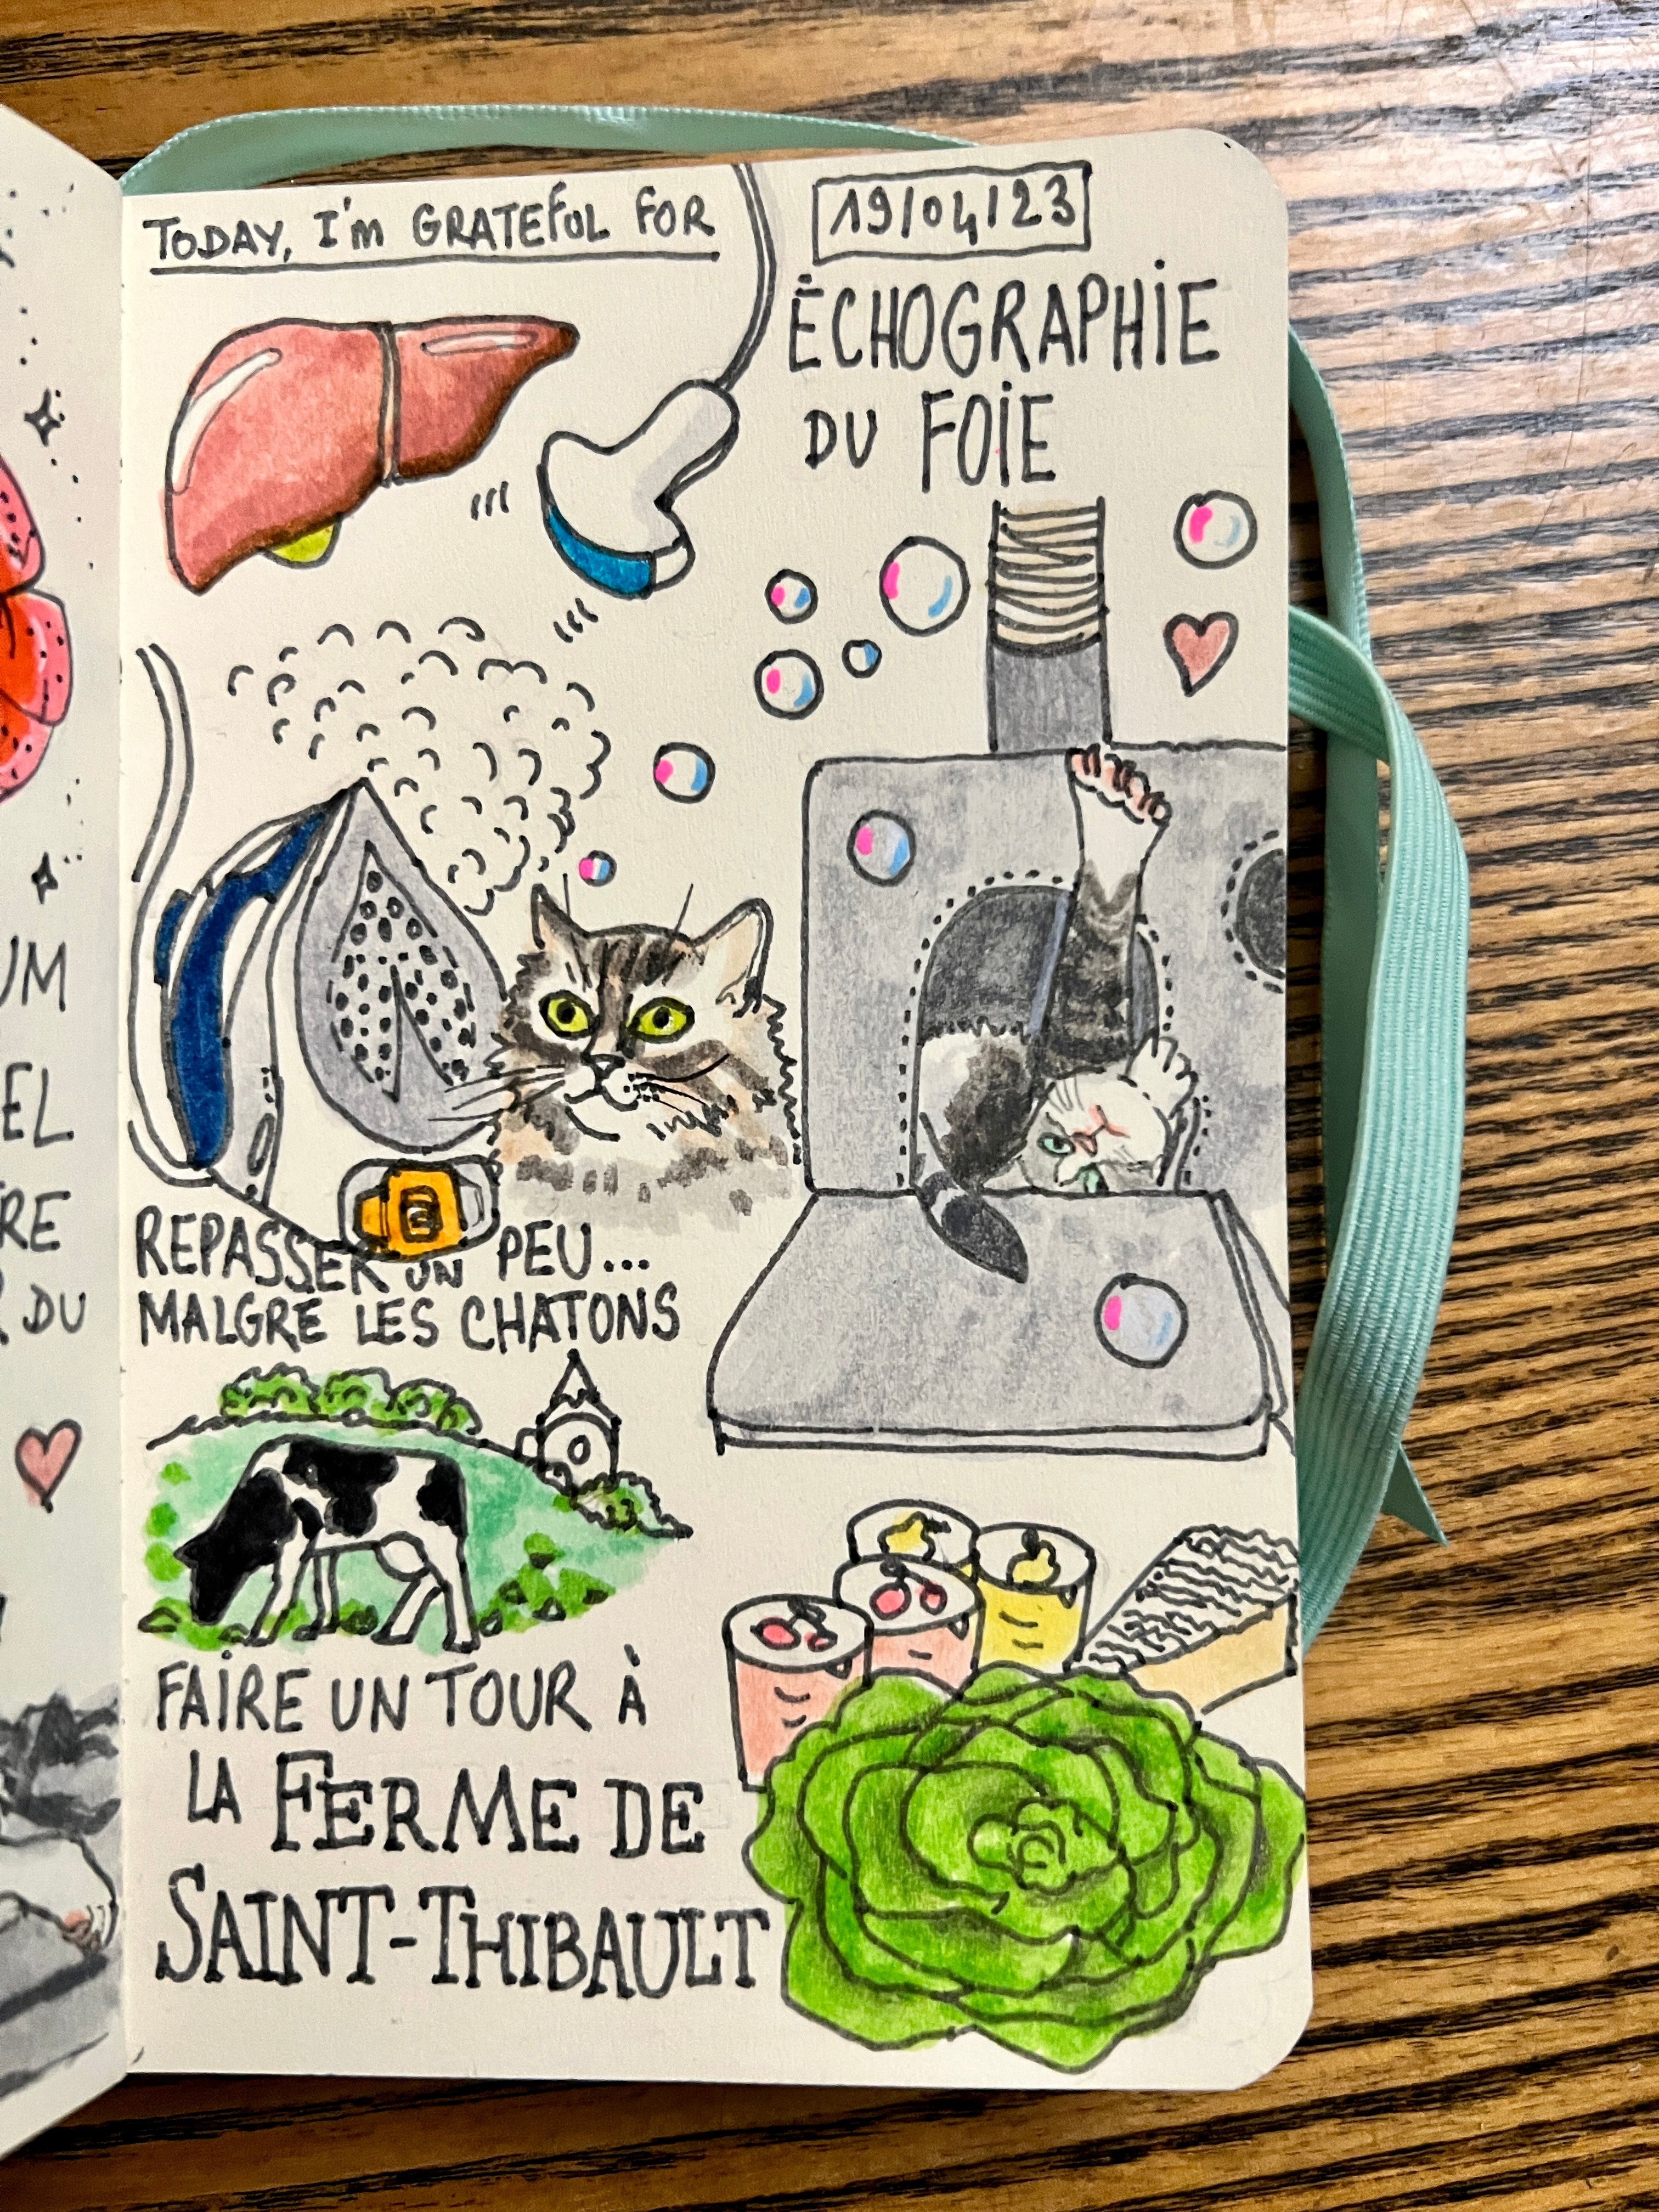 TODAY, I'm GRATEFUL FOR
19/04/23
ÉCHOGRAPHIE
DU FOIE
REPASSER UN PEU...
MALGRE LES CHATONS
FAIRE UN TOUR À
LA FERME DE
SAINT-THIBAULT
UM
EL
RE
DU